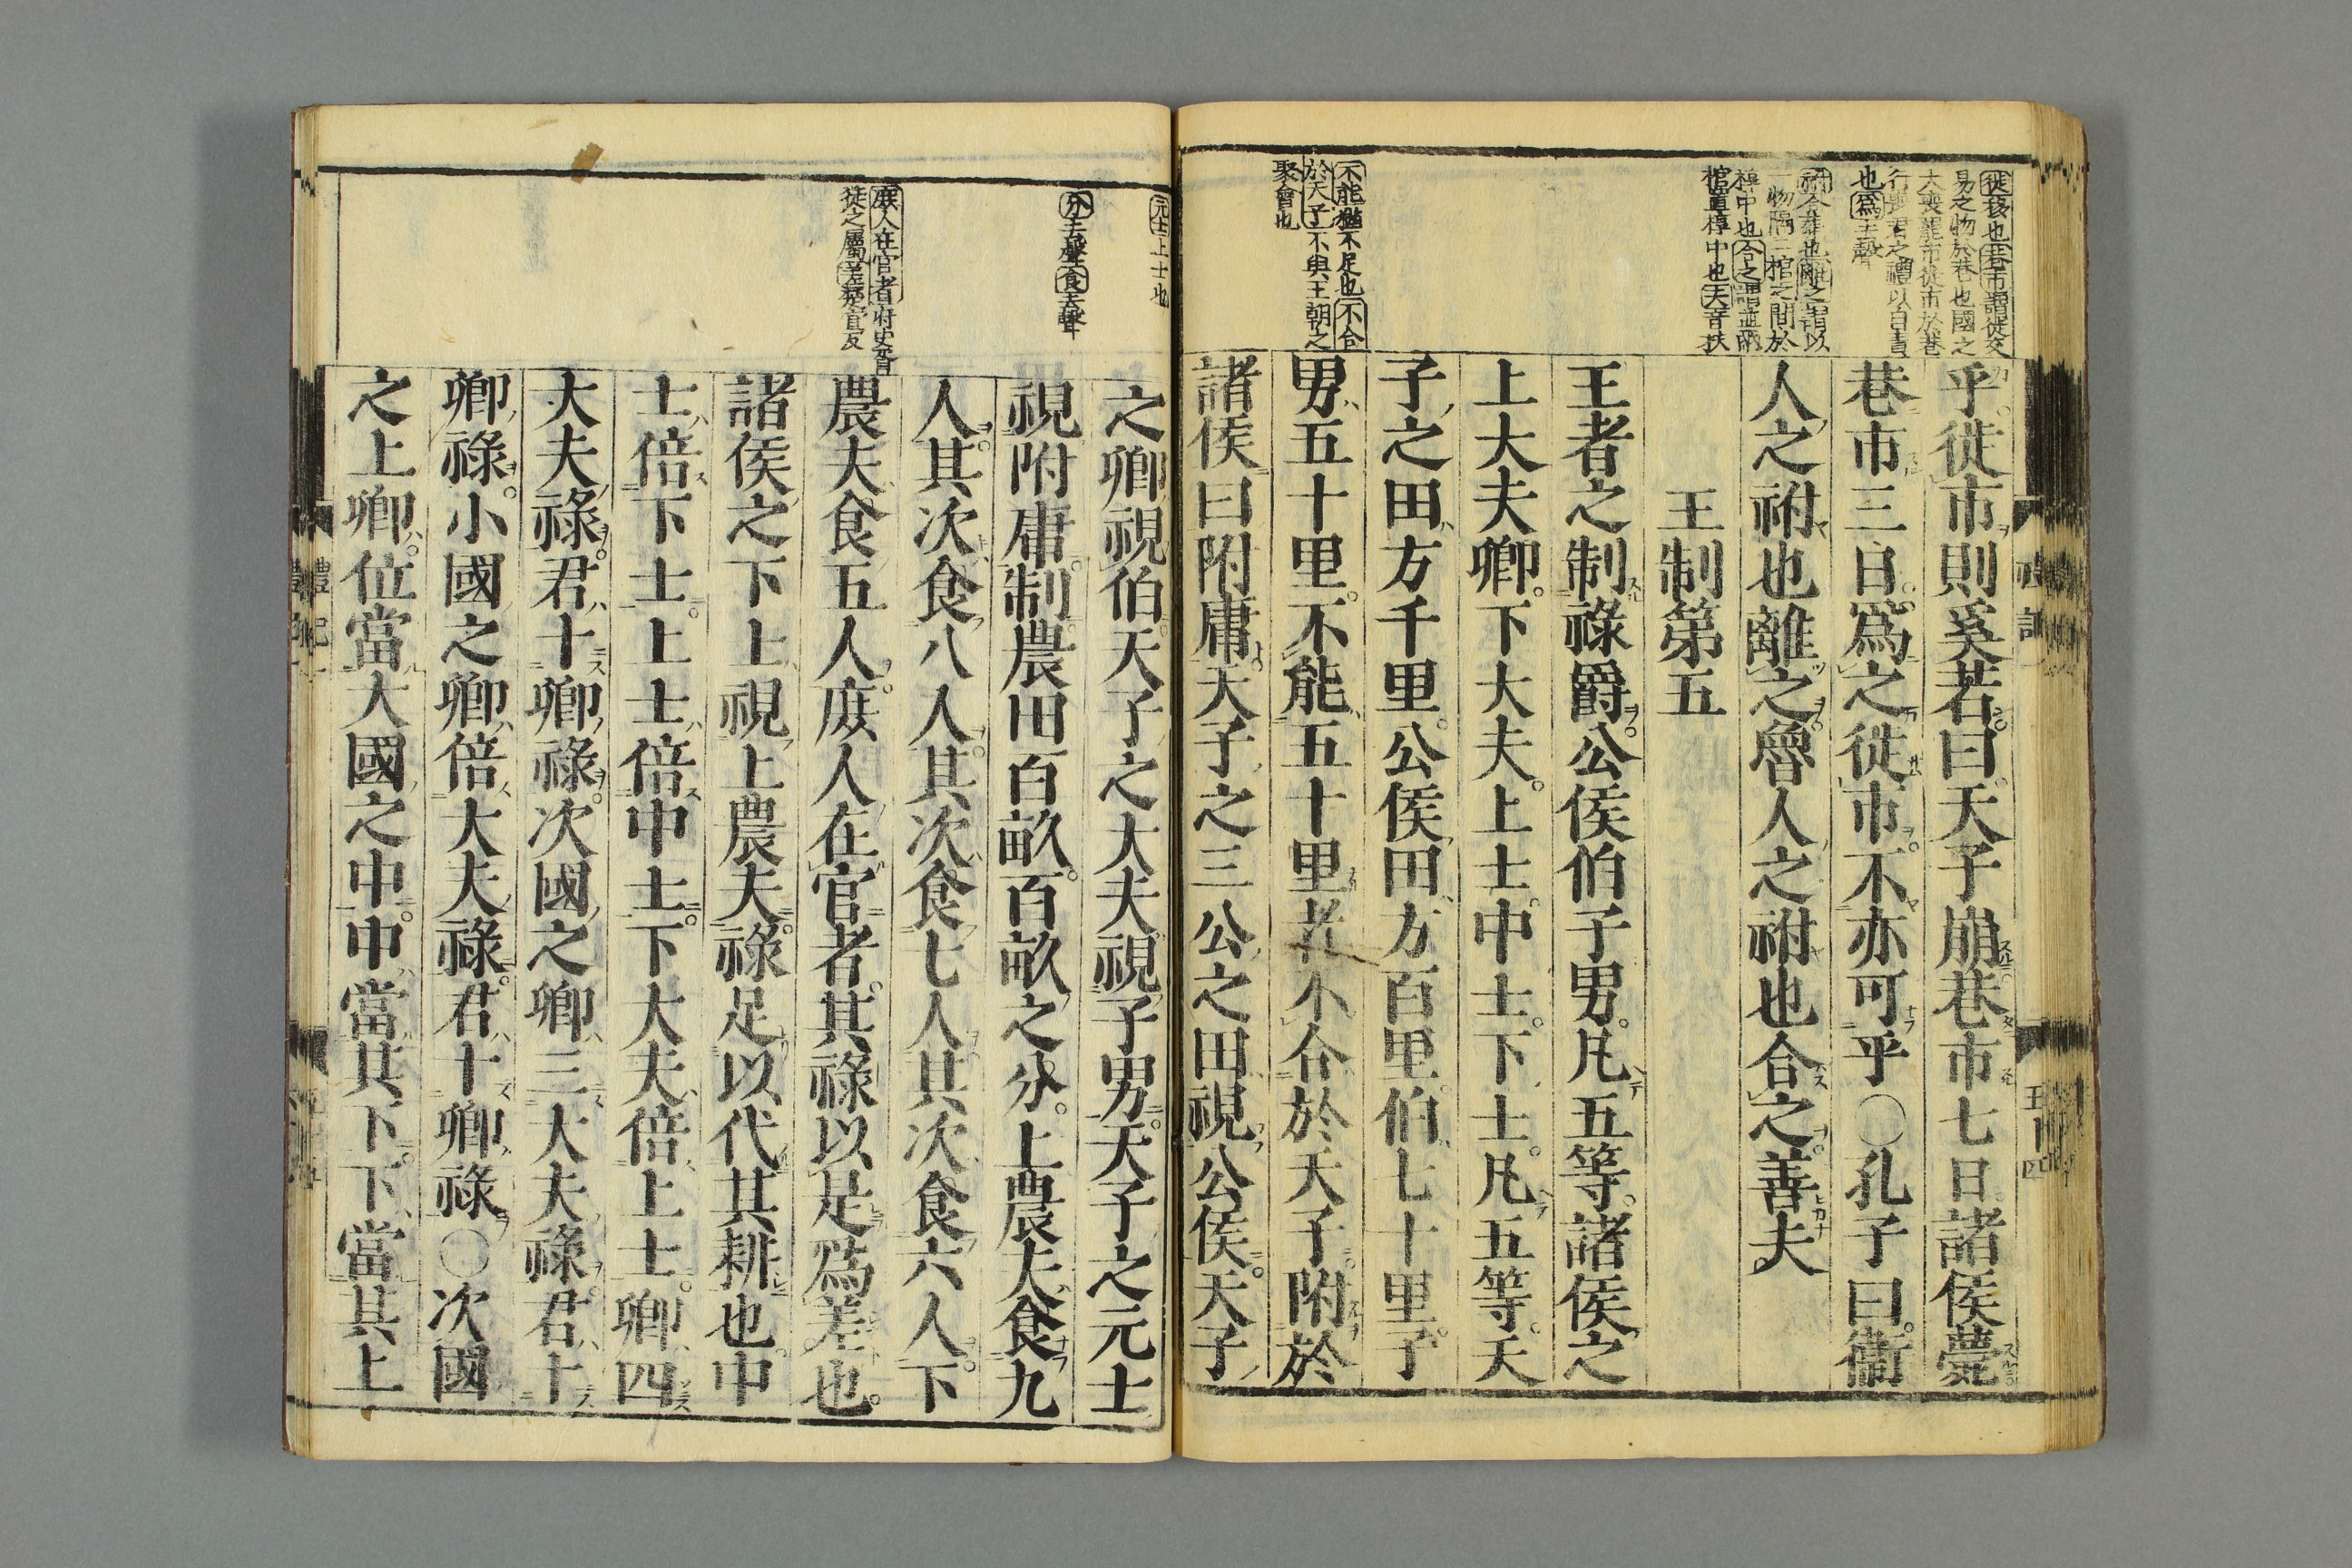 徙移也巷市謂徙交
易之物於巷也國之
大喪罷市徙市於巷
行喪君之禮以自責
也為去聲
祔合葬也離之謂以
一物隔二棺之間於
椁中也合之謂並兩
棺置椁中也夫音扶
不能猶不足也不合
於天子不與王朝之
聚會也
乎徙市則奚若曰天子崩巷市七日諸侯薨
巷市三日為之徙市不亦可乎〇孔子曰衞
人之祔也離之魯人之祔也合之善夫
王制第五
王者之制祿爵公侯伯子男凡五等諸侯之
上大夫卿下大夫上士中士下士凡五等天
子之田方千里公侯田方百里伯七十里子
男五十里不能五十里者不合於天子附於
諸侯曰附庸天子之三公之田視公侯天子
元士上士也
分去聲食去聲
庶人在官者府史胥
徒之屬差楚宜反
之卿視伯天子之大夫視子男天子之元士
視附庸制農田百畝百畝之分上農夫食九
人其次食八人其次食七人其次食六人下
農夫食五人庶人在官者其祿以是為差也
諸侯之下士視上農夫祿足以代其耕也中
士倍下士上士倍中士下大夫倍上士卿四
大夫祿君十卿祿次國之卿三大夫祿君十
卿祿小國之卿倍大夫祿君十卿祿〇次國
之上卿位當大國之中中當其下下當其上